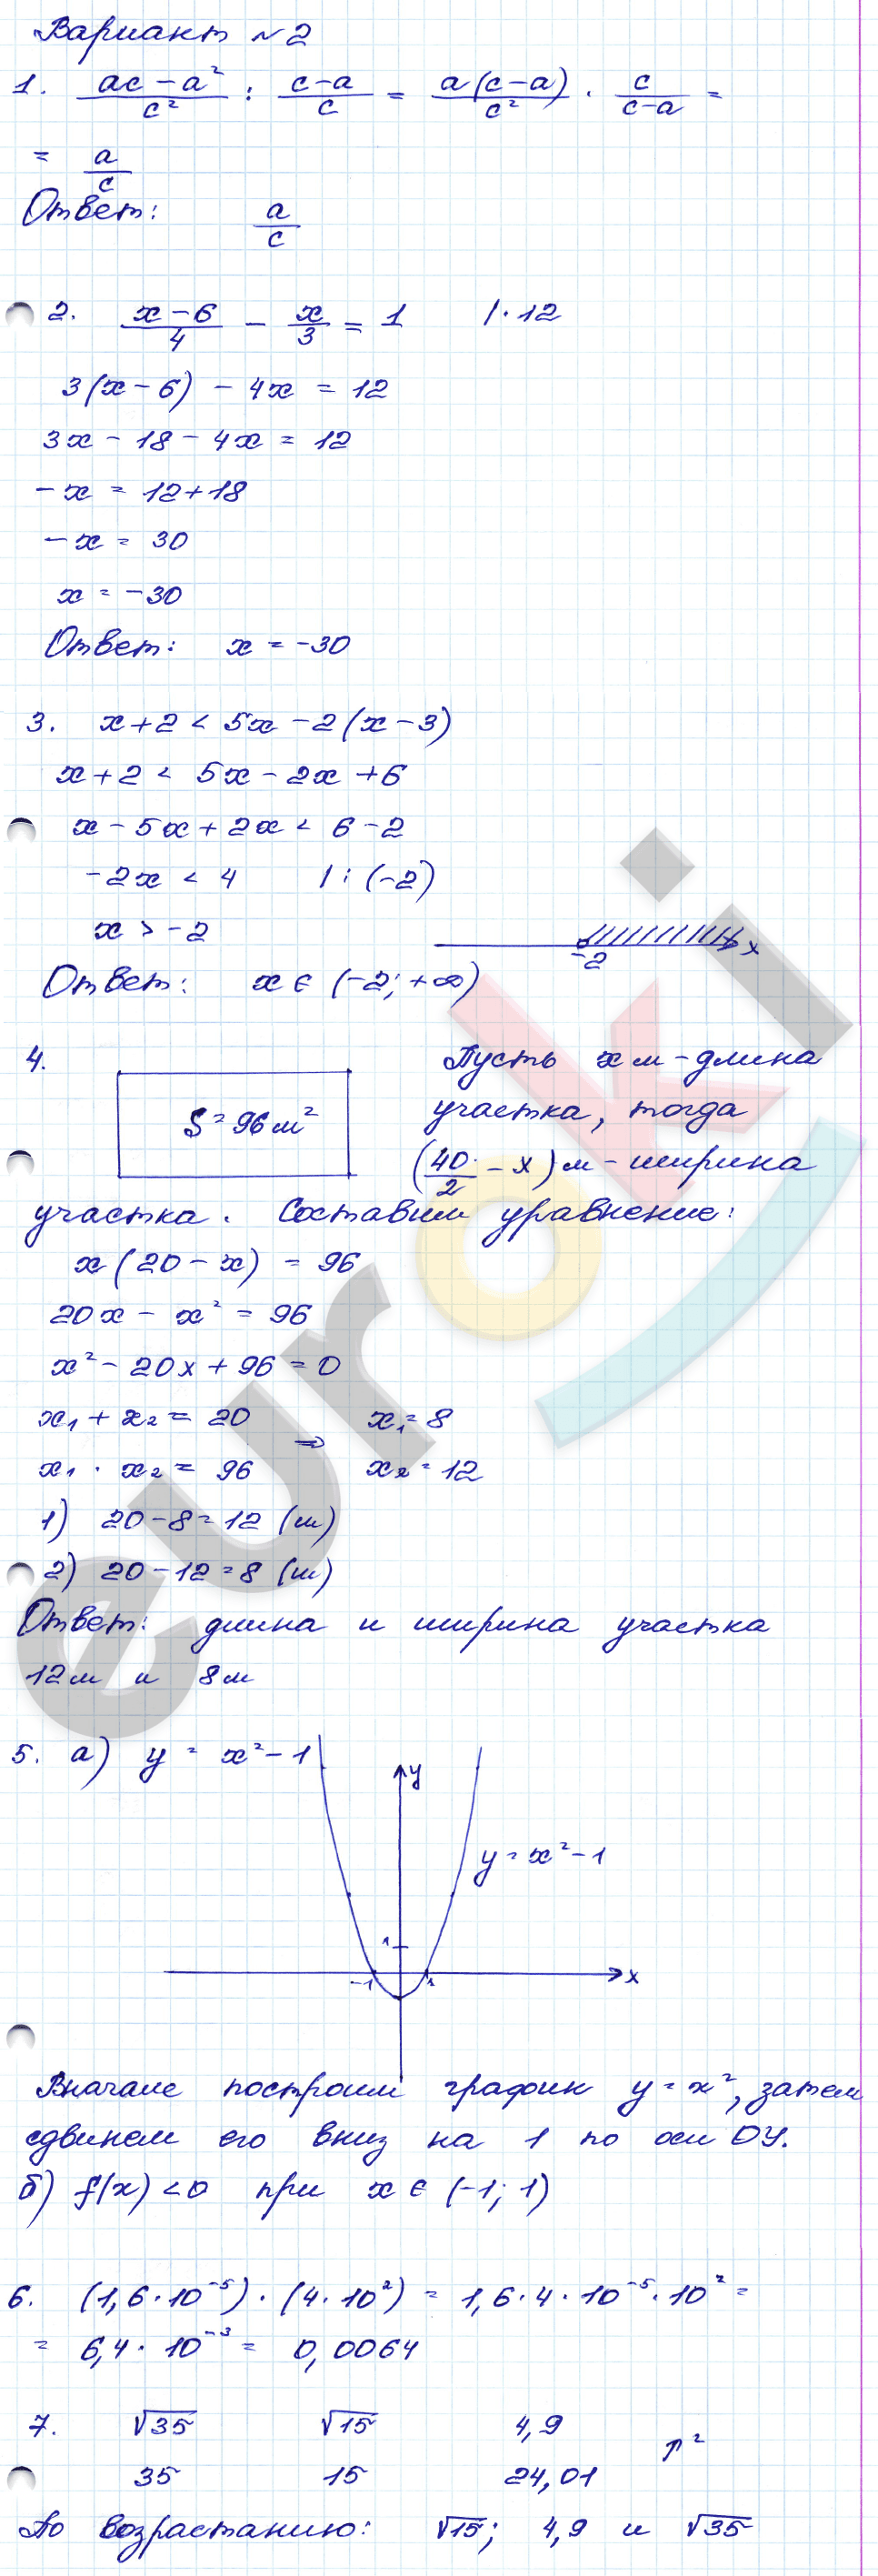 Вариант №2
1. (ac - a²)/c² : (c-a)/c = a(c-a)/c² · c/(c-a) =
= a/c
Ответ: a/c
2. (x-6)/4 - x/3 = 1 | · 12
3(x-6) - 4x = 12
3x - 18 - 4x = 12
-x = 12+18
-x = 30
x = -30
Ответ: x = -30
3. x+2 < 5x - 2(x-3)
x+2 < 5x - 2x + 6
x - 5x + 2x < 6 - 2
-2x < 4 | : (-2)
x > -2
-2 x
Ответ: x ∈ (-2; +∞)
4. S = 96 м² Пусть x м - длина
участка, тогда
(40/2 - x) м - ширина
участка. Составим уравнение:
x(20 - x) = 96
20x - x² = 96
x² - 20x + 96 = 0
x₁ + x₂ = 20 ⇒ x₁ = 8
x₁ · x₂ = 96 x₂ = 12
1) 20 - 8 = 12 (м)
2) 20 - 12 = 8 (м)
Ответ: длина и ширина участка
12 м и 8 м
5. а) y = x² - 1
y
y = x² - 1
1
-1 1 x
Вначале построим график y = x², затем
сдвинем его вниз на 1 по оси ОУ.
б) f(x) < 0 при x ∈ (-1; 1)
6. (1,6 · 10⁻⁵) · (4 · 10²) = 1,6 · 4 · 10⁻⁵ · 10² =
= 6,4 · 10⁻³ = 0,0064
7. √35 √15 4,9 ↑²
35 15 24,01
По возрастанию: √15; 4,9 и √35
euroki